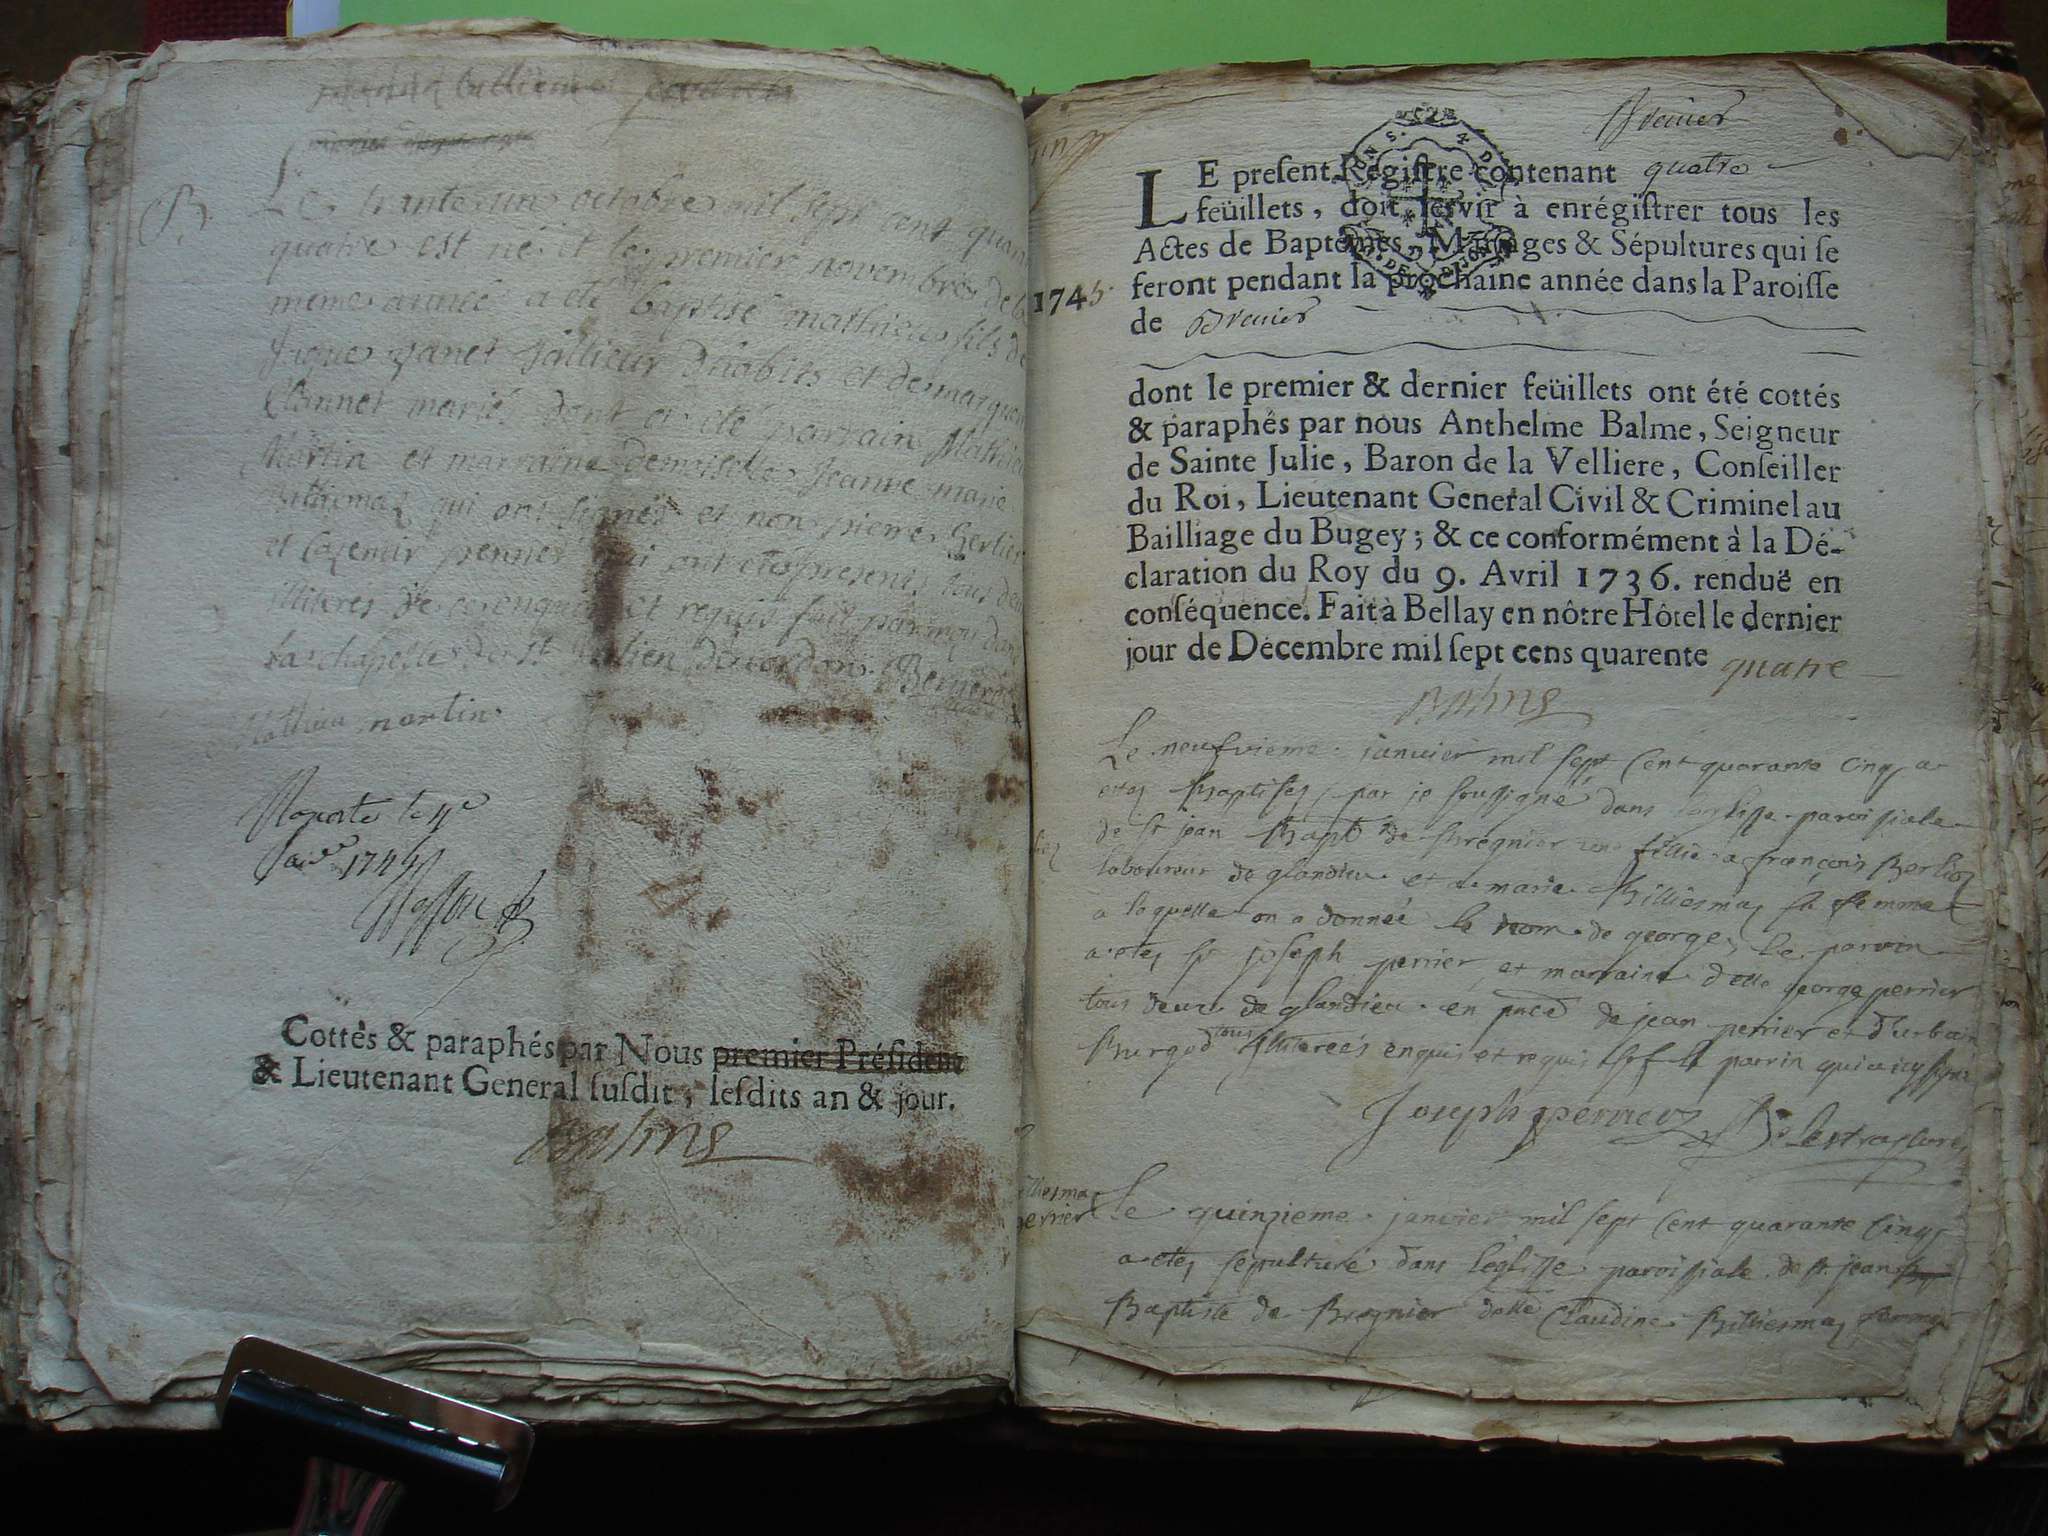 B
Le trante un octobre mil sept cent quaran
quatre est né et le premier novembre de la
meme année a eté baptisé mathieu fils de
janet tallieur d'habits et de
marié dont a eté parrain Mathieu
Martin et marraine demoiselle Jeanne marie
Billiemaz qui ont signés et non pierre Gerlier
et qui ont etes presents tous deux
illiteres de ce enquis et requis fait par moy dans
la chapelle de St Julien de cordon
Mathieu martin
le
1745
Cottés & paraphés par Nous premier Président
& Lieutenant General susdit, lesdits an & jour.
Balme
Brenier
LE present Registre contenant quatre
feüillets, doit servir à enrégistrer tous les
Actes de Baptêmes, Mariages & Sépultures qui se
1745 feront pendant la prochaine année dans la Paroisse
de Brenier
dont le premier & dernier feüillets ont été cottés
& paraphés par nous Anthelme Balme, Seigneur
de Sainte Julie, Baron de la Velliere, Conseiller
du Roi, Lieutenant General Civil & Criminel au
Bailliage du Bugey; & ce conformément à la Dé-
claration du Roy du 9. Avril 1736. renduë en
conséquence. Fait à Bellay en nôtre Hôtel le dernier
jour de Décembre mil sept cens quarente quatre
Balme
Le neufvieme janvier mil sept cent quarante cinq a
etez Baptisez par je soussigné dans leglisse paroissiale
de st jean Bapt de Bregnier une fillie a françois Berlioz
laboureur de glandieu et a marie Billiemaz sa femme
a laquelle on a donnée le nom de george, le parrin
a etez sr joseph perrier et marraine delle george perrier
tous deux de glandieu en pnce de jean perrier et d'urbain
Burgod tous illiterées enquis et requis sauf le parrin qui a icy signé
Joseph perrier De Lestra
perrier
Le quinzieme janvier mil sept cent quarante cinq
a etez sepulturé dans leglisse paroissiale de st jean
Baptiste de Bregnier delle Claudine Billiemaz femme